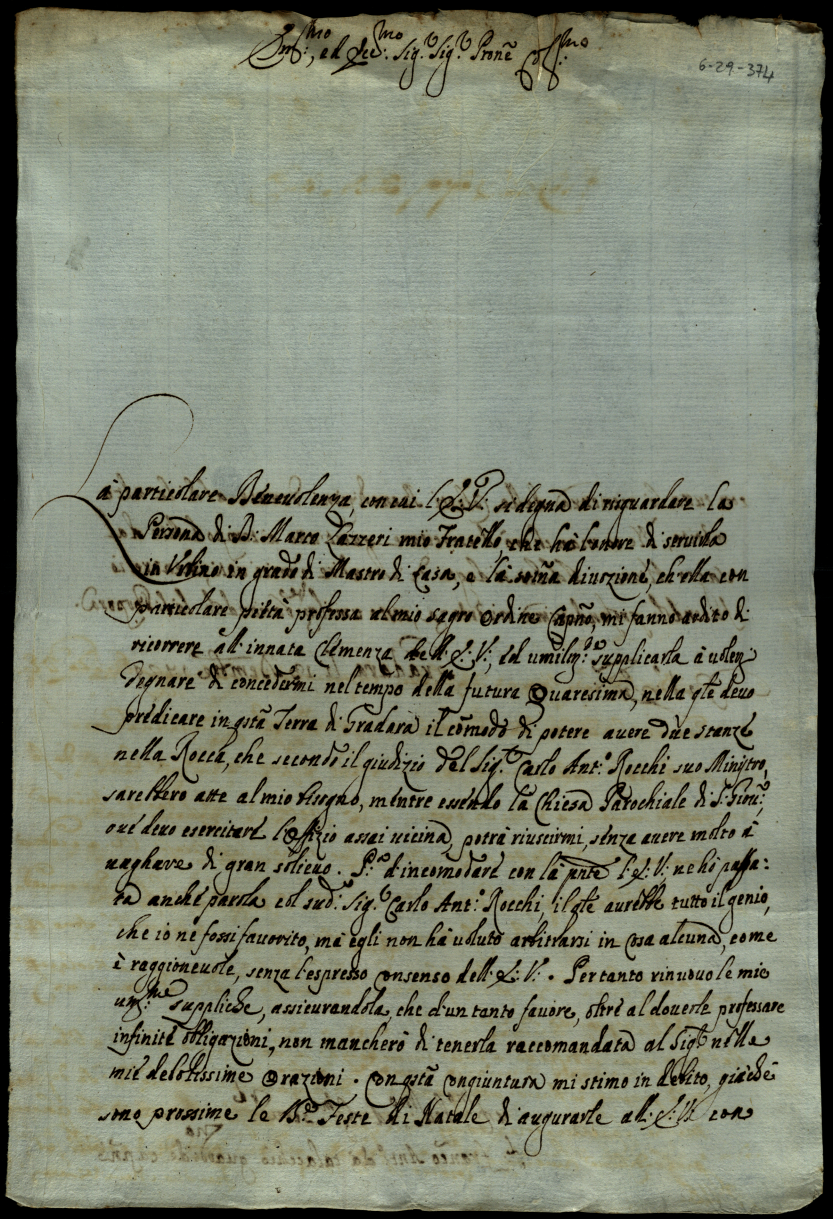 Ill.mo, ed Ecc.mo Sig.r Sig.r Prone Col.mo
6-29-374
La particolare Beneuolenza, con cui l'E: V: si degna di riguardare la
Persona di D: Marco Lazzeri mio Fratello, che hà l'onore di seruirla
in Vrbino in grado di Mastro di Casa, e la soma diuozione, ch'ella con
particolare pietà professa al mio sagro Ordine Capño, mi fanno ardito di
ricorrere all'innata Clemenza dell'E: V:, ed umilm.te supplicarla à uolersi
degnare di concedermi nel tempo della futura Quaresima, nella qle deuo
predicare in qsta Terra di Gradara il comodo di potere auere due stanze
nella Rocca, che secondo il giudizio del Sig.r Carlo Ant.o Rocchi suo Ministro,
sarebbero atte al mio bisogno, mentre essendo la Chiesa Parochiale di S: Giou:,
oue deuo esercitare l'Offizio assai uicina, potrà riuscirmi, senza auere molto à
uiaggiare di gran solieuo. P.a d'incomodare con la pnte l'E: V: ne hò passa:
ta anche parola col sud.o Sig.r Carlo Ant.o Rocchi, il qle aurebbe tutto il genio,
che io ne fossi fauorito, mà egli non hà uoluto arbitrarsi in cosa alcuna, come
è raggioneuole, senza l'espresso consenso dell'E: V: . Per tanto rinuouo le mie
um:me suppliche, assicurandola, che d'un tanto fauore, oltre al douerle professare
infinite obligazioni, non mancherò di tenerla raccomandata al Sig.re nelle
mie debolissime Orazioni . Con qsta congiuntura mi stimo in debito, giàche
sono prossime le S.te Feste di Natale di augurarle all'E: V: con